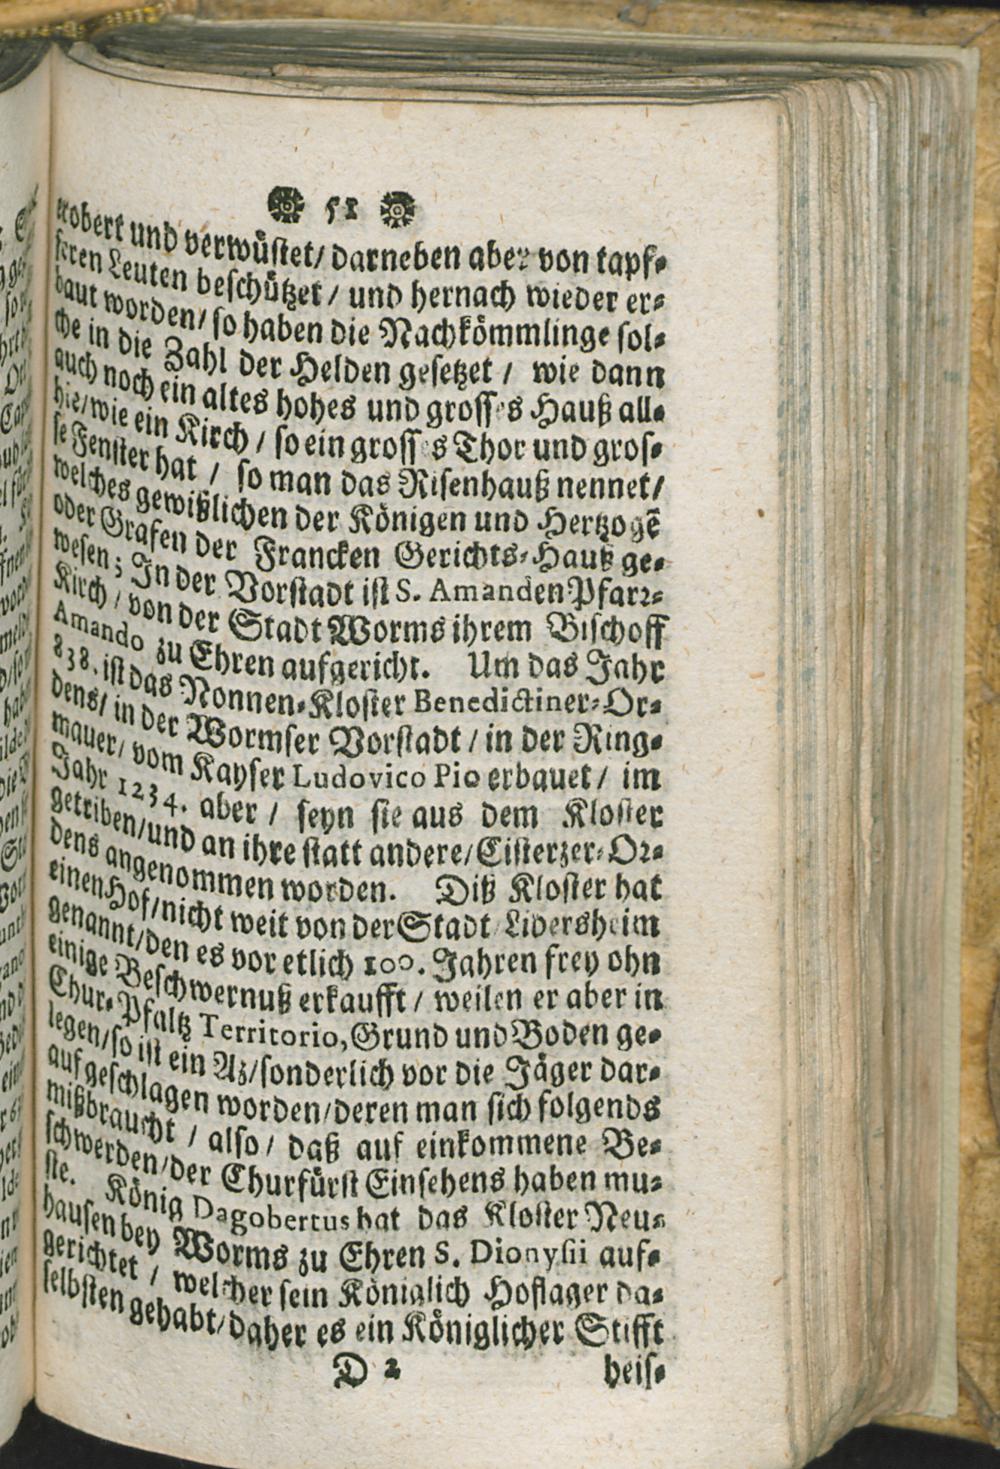 51
erobert und verwüstet/ darneben aber von tapf-
feren Leuten beschützet / und hernach wieder er-
baut worden/ so haben die Nachkömmlinge sol-
che in die Zahl der Helden gesetzet / wie dann
auch noch ein altes hohes und grosses Hauß all-
hie/ wie ein Kirch / so ein grosses Thor und gros-
se Fenster hat / so man das Risenhauß nennet/
welches gewißlichen der Königen und Hertzogē
oder Grafen der Francken Gerichts-Hauß ge-
wesen; In der Vorstadt ist S. Amanden-Pfarr-
Kirch / von der Stadt Worms ihrem Bischoff
Amando zu Ehren aufgericht. Um das Jahr
838. ist das Nonnen-Kloster Benedictiner-Or-
dens/ in der Wormser Vorstadt / in der Ring-
mauer/ vom Kayser Ludovico Pio erbauet/ im
Jahr 1234. aber / seyn sie aus dem Kloster
getriben/und an ihre statt andere/ Cisterzer-Or-
dens angenommen worden. Diß Kloster hat
einen Hof/nicht weit von der Stadt Lidersheim
genannt/den es vor etlich 100. Jahren frey ohn
einige Beschwernuß erkaufft / weilen er aber in
Chur-Pfaltz Territorio, Grund und Boden ge-
legen/so ist ein Az/sonderlich vor die Jäger dar-
auf geschlagen worden/deren man sich folgends
mißbraucht / also / daß auf einkommene Be-
schwerden/der Churfürst Einsehens haben mu-
ste. König Dagobertus hat das Kloster Neu-
hausen bey Worms zu Ehren S. Dionysii auf-
gerichtet / welcher sein Königlich Hoflager da-
selbsten gehabt/daher es ein Königlicher Stifft
D 2 heis-